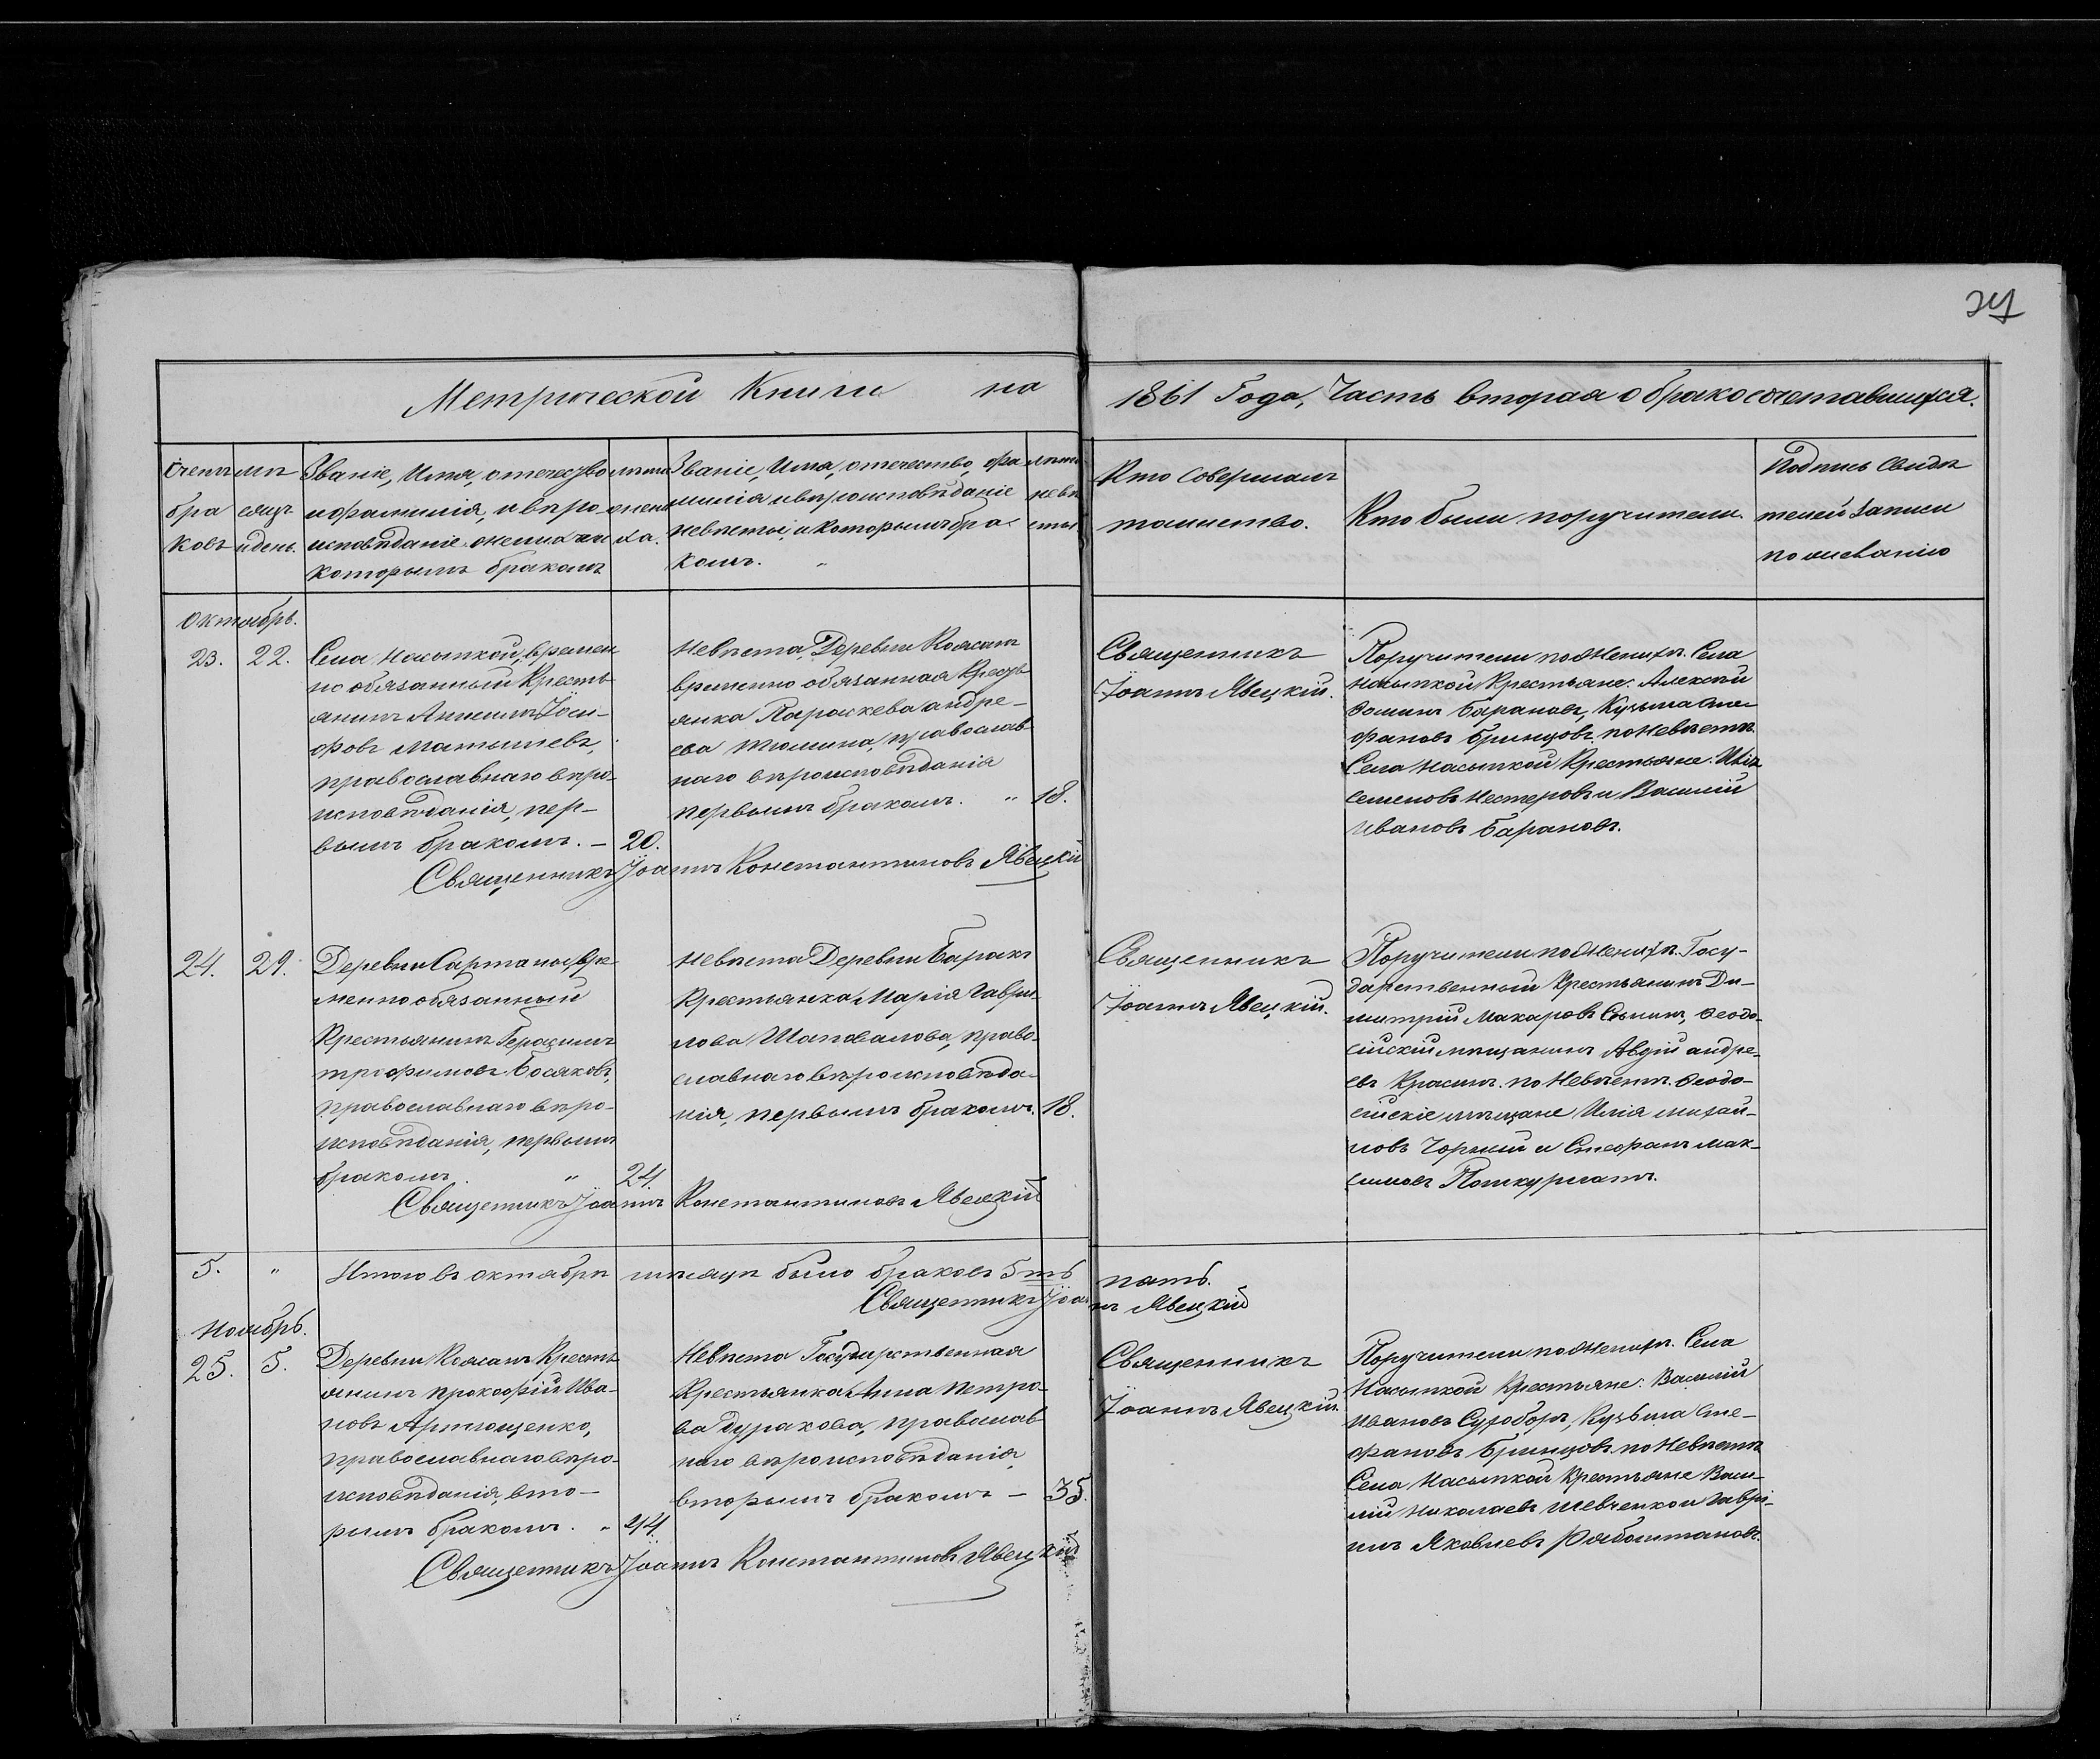 Метрической Книги на 1861 Года, Часть вторая о бракосочетавшихся.
Счетъ бра ковъ
мѣ сяцъ и день.
Званіе, Имя, отечество
и фамилія, и вѣро-
исповѣданіе жениха и
которымъ бракомъ
лѣта жени ха.
Званіе, Имя, отечество, фа
милія и вѣроисповѣданіе
невѣсты, и которымъ бра
комъ.
лѣта невѣ сты
Кто совершалъ
таинство.
Кто были поручители.
Подпись свидѣ
телей записи
по желанію
Октябрь.
23. 22.
Села Насыпкой, времен
но обязанный Кресть
янинъ
фовъ Матышевъ,
православнаго вѣро-
исповѣданія, пер-
вымъ бракомъ. — 20.
Невѣста, Деревни Кояшъ
временно обязанная Кресть
янка Параскева андре-
ева Тюмина, православ
наго вѣроисповѣданія
первымъ бракомъ. " 18.
Священникъ
Іоаннъ Явецкій.
Поручители по Женихѣ. Села
Насыпкой Крестьяне: Алексѣй
Фоминъ Барановъ, Кузьма Сте-
фановъ Бринцовъ. по Невѣстѣ
Села Насыпкой Крестьяне:
семеновъ Нестеровъ и Василій
Ивановъ Барановъ.
Священникъ Іоаннъ Константиновъ Явецкій
24. 29.
Деревни Сартана, вре
менно обязанный
Крестьянинъ Герасимъ
трофимовъ Босяковъ,
православнаго вѣро-
исповѣданія, первымъ
бракомъ. " 24.
Невѣста Деревни Баракъ
Крестьянка Марія Гаври-
лова Шаповалова, право-
славнаго вѣроисповѣда-
нія, первымъ бракомъ. 18.
Священникъ
Іоаннъ Явецкій.
Поручители по Женихѣ. Госу-
дарственный Крестьянинъ Ди-
митрій Макаровъ Ѳеодо-
сійскій мѣщанинъ Авдій андре-
евъ Красинъ. по Невѣстѣ. Ѳеодо-
сійскіе мѣщане Илія михай-
ловъ Чорный и Стефанъ мак-
симовъ
Священникъ Іоаннъ Константиновъ Явецкій
5. " Итого въ октябрѣ мѣсяцѣ было браковъ 5ть пять.
Священникъ Іоаннъ Явецкій
Ноябрь.
25. 5.
Деревни Кояшъ Кресть
янинъ Прокофій Ива-
новъ Артющенко,
православнаго вѣро-
исповѣданія, вто-
рымъ бракомъ. " 44.
Невѣста Государственная
Крестьянка Анна Петро-
ва Дуракова, православ
наго вѣроисповѣданія,
вторымъ бракомъ — 35.
Священникъ
Іоаннъ Явецкій.
Поручители по Женихѣ. Села
Насыпкой Крестьяне: Василій
Ивановъ Кузьма Сте-
фановъ Бринцовъ. по Невѣстѣ
Села Насыпкой Крестьяне Васи-
лій Николаевъ Шевченко и Гаврі-
илъ Яковлевъ
Священникъ Іоаннъ Константиновъ Явецкій